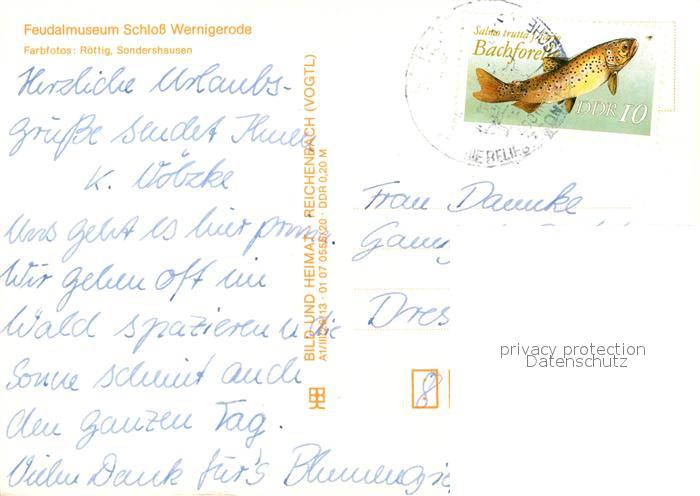 Feudalmuseum Schloß Wernigerode
Farbfotos: Röttig, Sondershausen
Herzliche Urlaubs-
grüße sendet Ihnen
K. Wölzke
Uns geht es hier prima.
Wir gehen oft im
Wald spazieren u. die
Sonne scheint auch
den ganzen Tag.
Vielen Dank für's Blumengie
BILD UND HEIMAT · REICHENBACH (VOGTL)
DDR 0,20 M
Salmo trutta
Bachforelle
DDR 10
Frau Dammke
Dres
8
privacy protection
Datenschutz